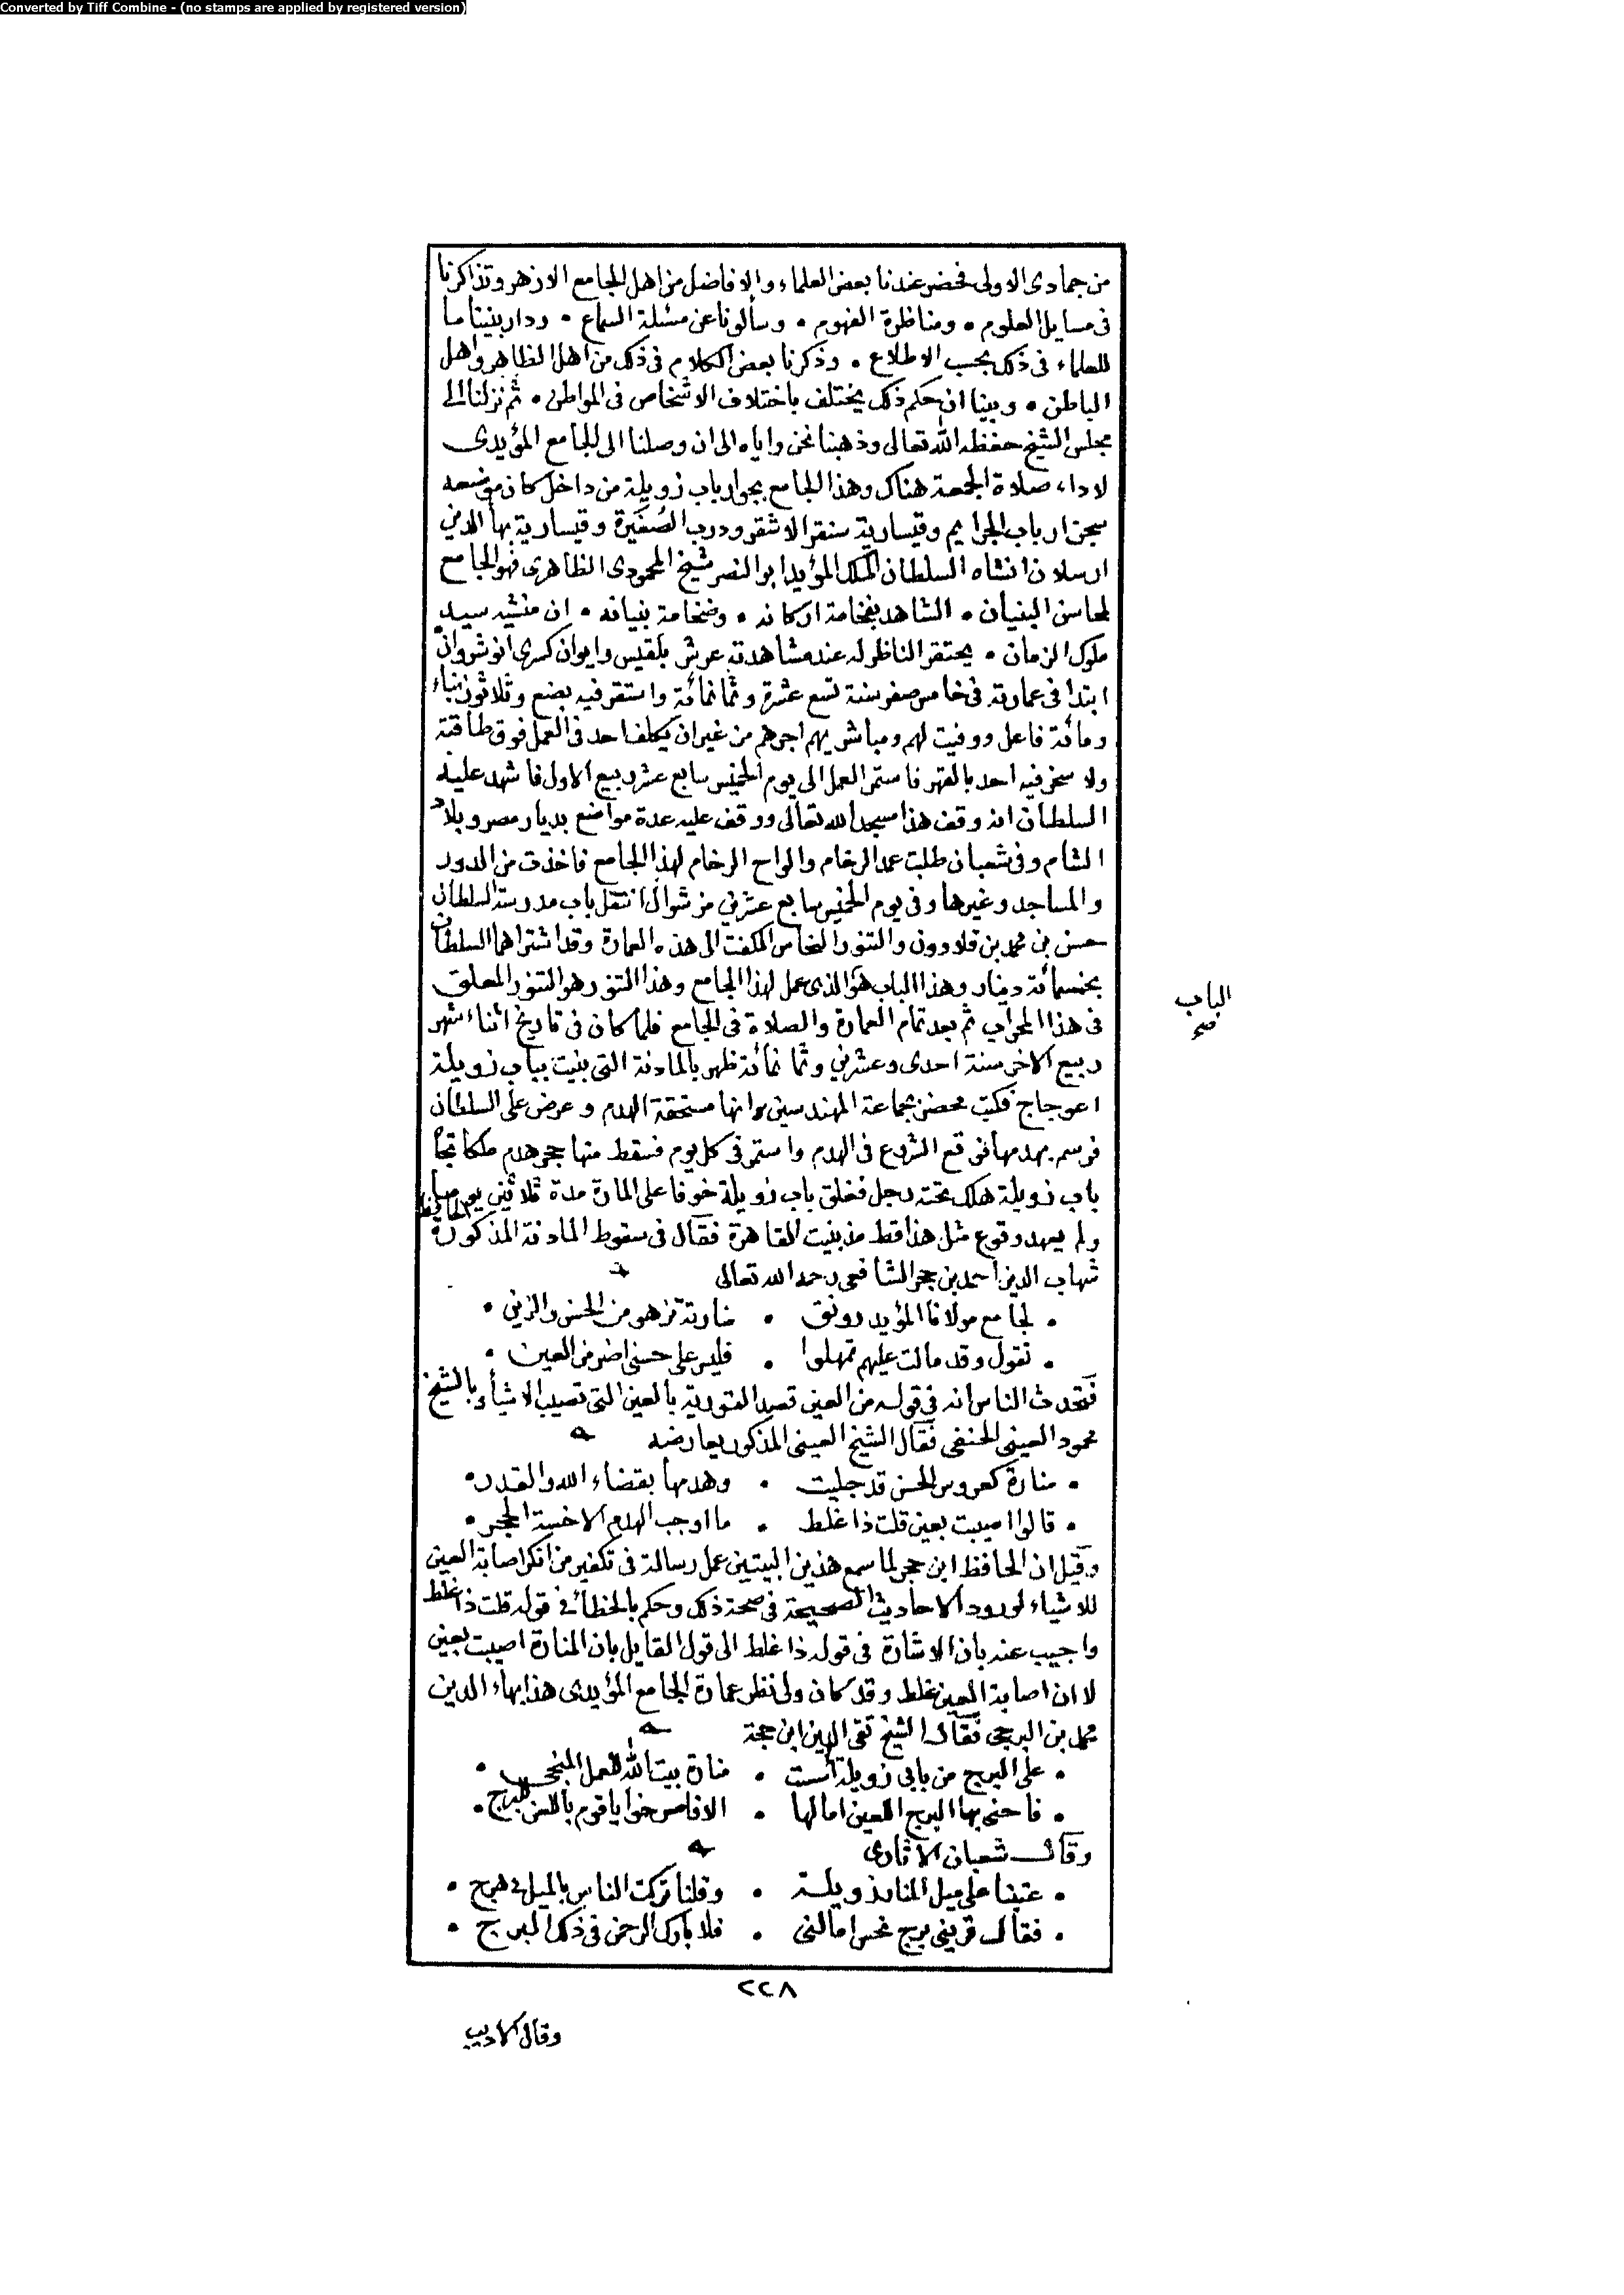 Converted by Tiff Combine - (no stamps are applied by registered version)
من جمادى الاولى فحضر عندنا بعض العلماء والافاضل من اهل الجامع الازهر وتذاكرنا
فى مسايل العلوم • ومناظرة الفهوم • وسألونا عن مسئلة السماع • ودار بيننا ما
للعلماء فى ذلك بحسب الاطلاع • وذكرنا بعض الكلام فى ذلك من اهل الظاهر واهل
الباطن • وبينا ان حكم ذلك يختلف باختلاف الاشخاص فى المواطن • ثم نزلنا الى
مجلس الشيخ حفظه الله تعالى وذهبنا نحن واياه الى ان وصلنا الى الجامع المؤيدى
لاداء صلاة الجمعة هناك وهذا الجامع بجوار باب زويلة من داخل كان موضعه
سجن ارباب الجرايم وقيسارية سنقر الاشقر ودرب الصغيرة وقيسارية بهاالدين
ارسلان انشاه السلطان الملك المؤيد ابو النصر شيخ المحمودى الظاهرى فهو الجامع
لمحاسن البنيان • الشاهد بفخامة اركانه • وضخامة بنيانه • ان منشيه سيد
ملوك الزمان • يحتقر الناظر له عند مشاهدته عرش بلقيس وايوان كسرى انوشروان
ابتدا فى عمارته فى خامس صفر سنة تسع عشرة وثمانمائة واستقر فيه بضع وثلاثون بناء
ومائة فاعل ووفيت لهم ولمباشريهم اجرهم من غير ان يكلف احد فى العمل فوق طاقته
ولا سخر فيه احد بالقهر فاستمر العمل الى يوم الخميس سابع عشر ربيع الاول فاشهد عليه
السلطان انه وقف هذا مسجدا لله تعالى ووقف عليه عدة مواضع بديار مصر وبلاد
الشام وفى شعبان طلبت عمد الرخام والواح الرخام لهذا الجامع فاخذت من الدور
والمساجد وغيرها وفى يوم الخميس سابع عشرين من شوال انتقل باب مدرسة السلطان
حسن بن محمد بن قلاوون والتنور النحاس المكفت الى هذه العمارة وقد اشتراهما السلطان
بخمسمائة دينار وهذا الباب هو الذى عمل لهذا الجامع وهذا التنور هو التنور المعلق
الباب
صح
فى هذا المحراب ثم بعد تمام العمارة والصلاة فى الجامع فلما كان فى تاريخ اثناء شهر
ربيع الاخر سنة احدى وعشرين وثمانمائة ظهر بالمادنة التى بنيت بباب زويلة
اعوجاج فكتب محضر بجماعة المهندسين وانها مستحقة الهدم وعرض على السلطان
فرسم بهدمها فوقع الشروع فى الهدم واستمر فى كل يوم فسقط منها حجر هدم ملكا تجاه
باب زويلة هلك تحته رجل فغلق باب زويلة خوفا على المارة مدة ثلاثين يوميا
ولم يعهد وقوع مثل هذا قط منذ بنيت القاهرة فقال فى سقوط المادنة المذكورة الحافظ
شهاب الدين احمد بن حجر الشافعى رحمه الله تعالى
• لجامع مولانا المؤيد رونق • منارته تزهو من الحسن والزين •
• تقول وقد مالت عليهم تمهلوا • فليس على حسنى اضر من العين •
فتحدث الناس انه فى قوله من العين قصد التورية بالعين التى تصيب الاشياء بالشيخ
محمود العينى الحنفى فقال الشيخ العينى المذكور يعارضه
• منارة كعروس الحسن قد جليت • وهدمها بقضاء الله والقدر •
• قالوا اصيبت بعين قلت ذا غلط • ما اوجب الهدم الا خسة الحجر •
وقيل ان الحافظ ابن حجر لما سمع هذين البيتين عمل رسالة فى تكفير من انكر اصابة العين
للاشياء لورود الاحاديث الصحيحة فى صحة ذلك وحكم بالخطأ فى قوله قلت ذا غلط
واجيب عنه بان الاشارة فى قوله ذا غلط الى قول القايل بان المنارة اصيبت بعين
لا ان اصابة العين غلط وقد كان ولى نظر عمارة الجامع المؤيدى هذا بهاء الدين
محمد بن البرجى فقال الشيخ تقى الدين ابن حجة
• على البرج من بابى زويلة اسست • منارة بيت الله للعمل المنجى •
• فاحنى بها البرج اللعين امالها • الا فاصرخوا يا قوم باللعن للبرج •
وقال شعبان الاثارى
• عتبنا على ميل المنار زويلة • وقلنا تركت الناس بالميل فى هرج •
• فقال قرينى برج نحس امالنى • فلا بارك الرحمن فى ذلك البرج •
٢٢٨
وقال الاديب